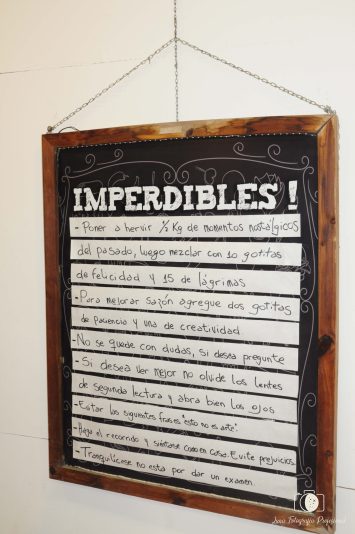 IMPERDIBLES!
- Poner a hervir ½ Kg de momentos nostálgicos
del pasado, luego mezclar con 10 gotitas
de felicidad y 15 de lágrimas
- Para mejorar sazón agregue dos gotitas
de paciencia y una de creatividad
- No se quede con dudas, si desea pregunte
- Si desea ver mejor no olvide los lentes
de segunda lectura y abra bien los ojos
- Evitar las siguientes frases "esto no es arte".
- Haga el recorrido y siéntase como en casa. Evite prejuicios
- Tranquilícese no esta por dar un examen.